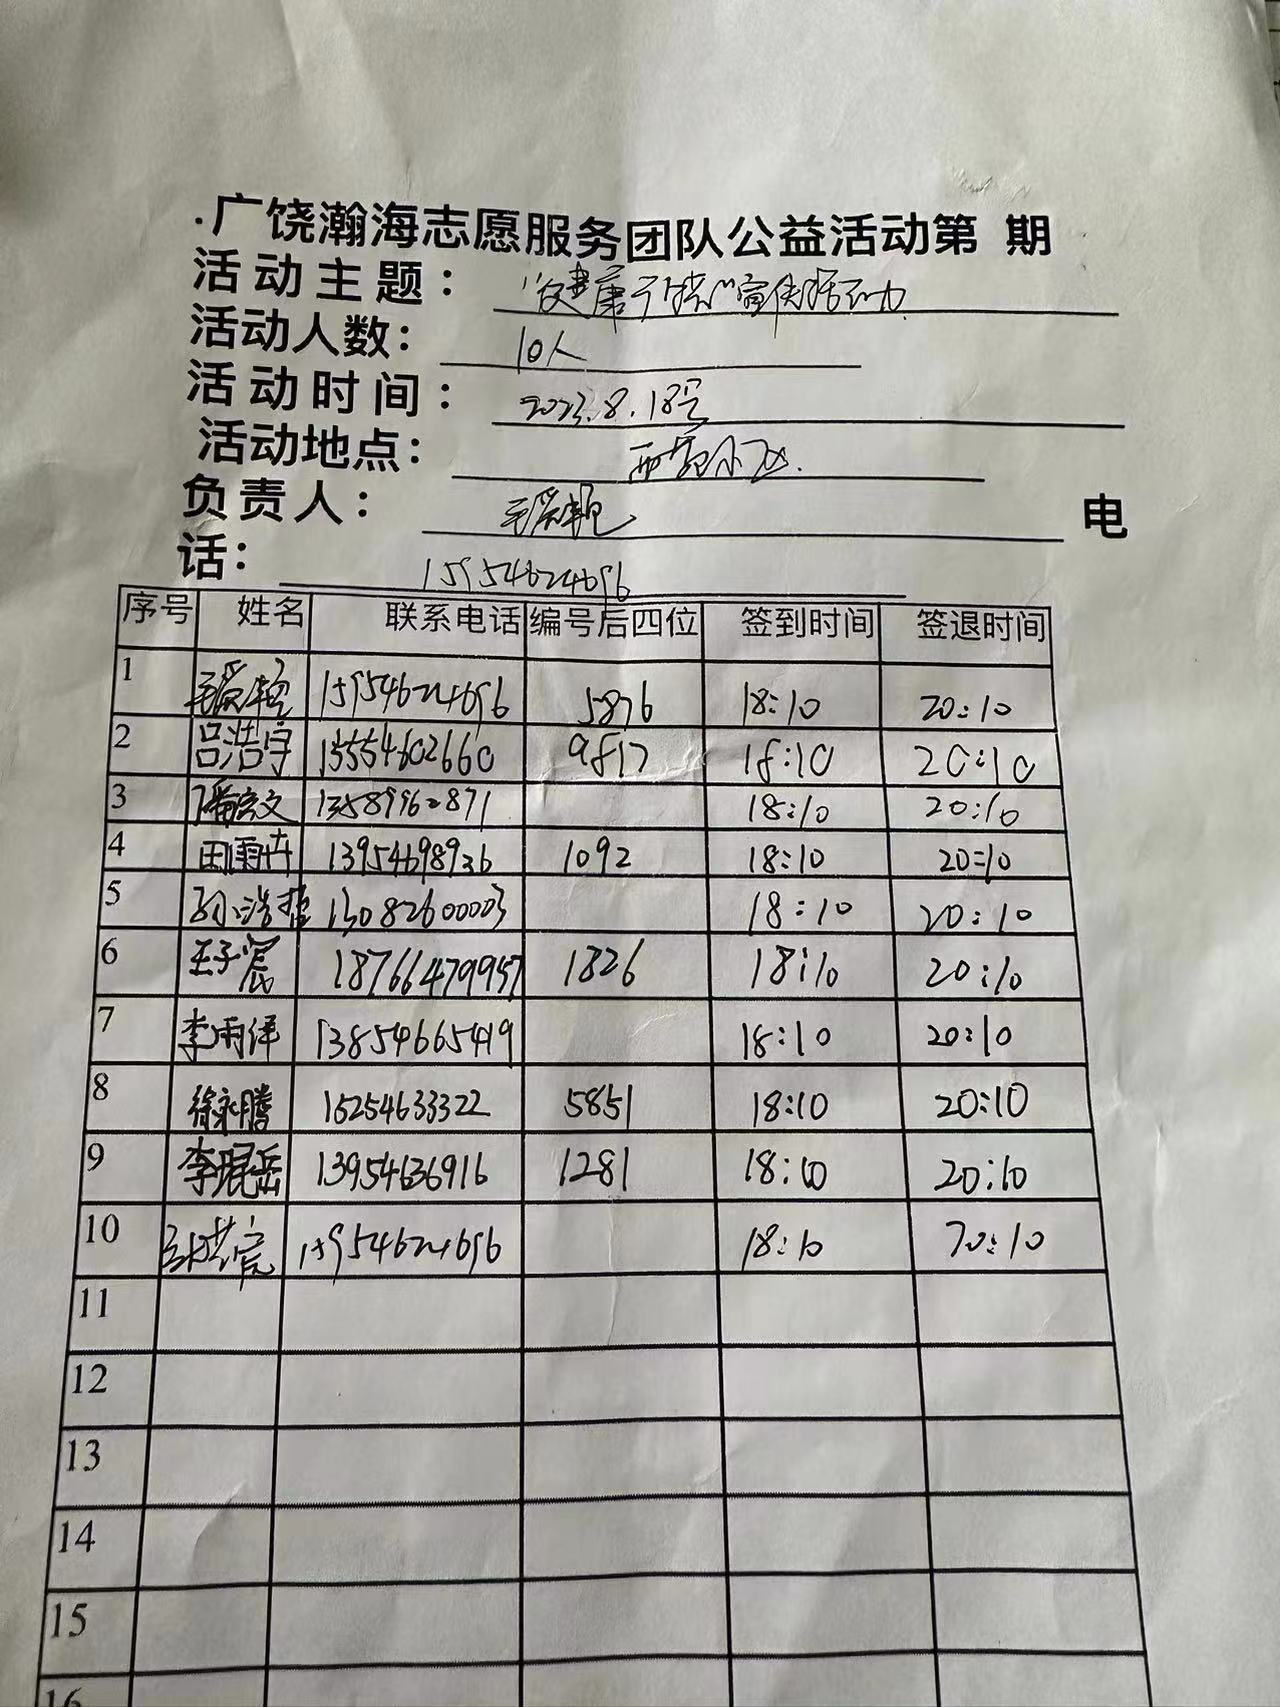 .广饶瀚海志愿服务团队公益活动第 期
活动主题： "健康 宣传活动
活动人数： 10人
活动时间： 2023.8.18号
活动地点： 西苑小区.
负责人： 电
话： 15954624696
序号 姓名 联系电话 编号后四位 签到时间 签退时间
1 15954624696 5876 18:10 20:10
2 吕浩宇 15554602660 9817 18:10 20:10
3 潘宏文 13589962871 18:10 20:10
4 田雨卉 13954698926 1092 18:10 20:10
5 孙浩哲 13082600003 18:10 20:10
6 王子宸 18766479957 1826 18:10 20:10
7 李雨洋 13854665419 18:10 20:10
8 徐永腾 15254633322 5851 18:10 20:10
9 李琨岳 13954636916 1281 18:10 20:10
10 15954624696 18:10 20:10
11
12
13
14
15
16